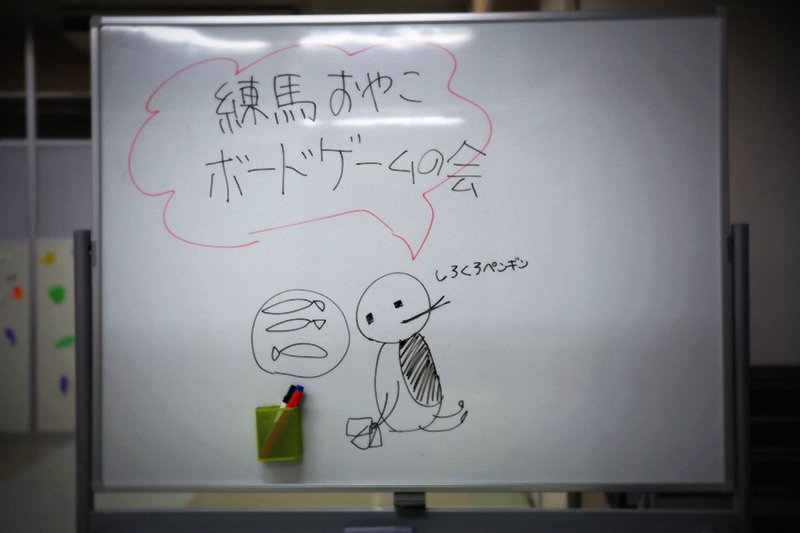 練馬おやこ
ボードゲームの会
しろくろペンギン